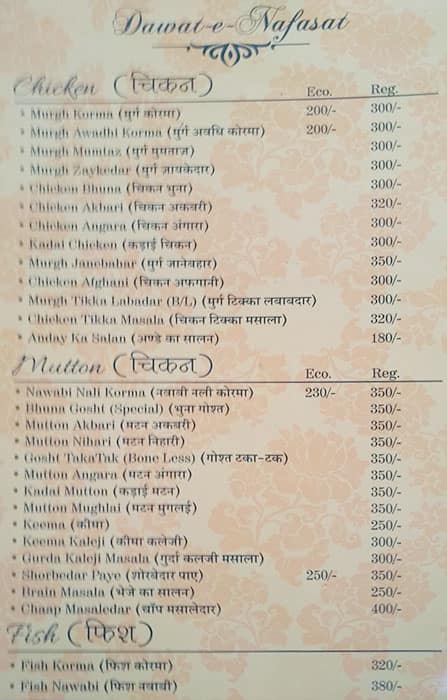 Dawat-e-Nafasat
Chicken (चिकन) Eco. Reg.
Murgh Korma (मुर्ग कोरमा) 200/- 300/-
Murgh Awadhi Korma (मुर्ग अवधि कोरमा) 200/- 300/-
Murgh Mumtaz (मुर्ग मुमताज) 300/-
Murgh Zaykedar (मुर्ग ज़ायकेदार) 300/-
Chicken Bhuna (चिकन भुना) 300/-
Chicken Akbari (चिकन अकबरी) 320/-
Chicken Angara (चिकन अंगारा) 300/-
Kadai Chicken (कड़ाई चिकन) 300/-
Murgh Janebahar (मुर्ग जानेबहार) 350/-
Chicken Afghani (चिकन अफगानी) 300/-
Murgh Tikka Labadar (B/L) (मुर्ग टिक्का लबाबदार) 300/-
Chicken Tikka Masala (चिकन टिक्का मसाला) 320/-
Anday Ka Salan (अण्डे का सालन) 180/-
Mutton (चिकन) Eco. Reg.
Nawabi Nali Korma (नवाबी नली कोरमा) 230/- 350/-
Bhuna Gosht (Special) (भुना गोश्त) 350/-
Mutton Akbari (मटन अकबरी) 350/-
Mutton Nihari (मटन निहारी) 350/-
Gosht TakaTak (Bone Less) (गोश्त टका-टक) 350/-
Mutton Angara (मटन अंगारा) 350/-
Kadai Mutton (कड़ाई मटन) 350/-
Mutton Mughlai (मटन मुगलई) 350/-
Keema (कीमा) 250/-
Keema Kaleji (कीमा कलेजी) 300/-
Gurda Kaleji Masala (गुर्दा कलजी मसाला) 300/-
Shorbedar Paye (शोरबेदार पाए) 250/- 350/-
Brain Masala (भेजे का सालन) 250/-
Chaap Masaledar (चॉप मसालेदार) 400/-
Fish (फिश)
Fish Korma (फिश कोरमा) 320/-
Fish Nawabi (फिश नवाबी) 380/-